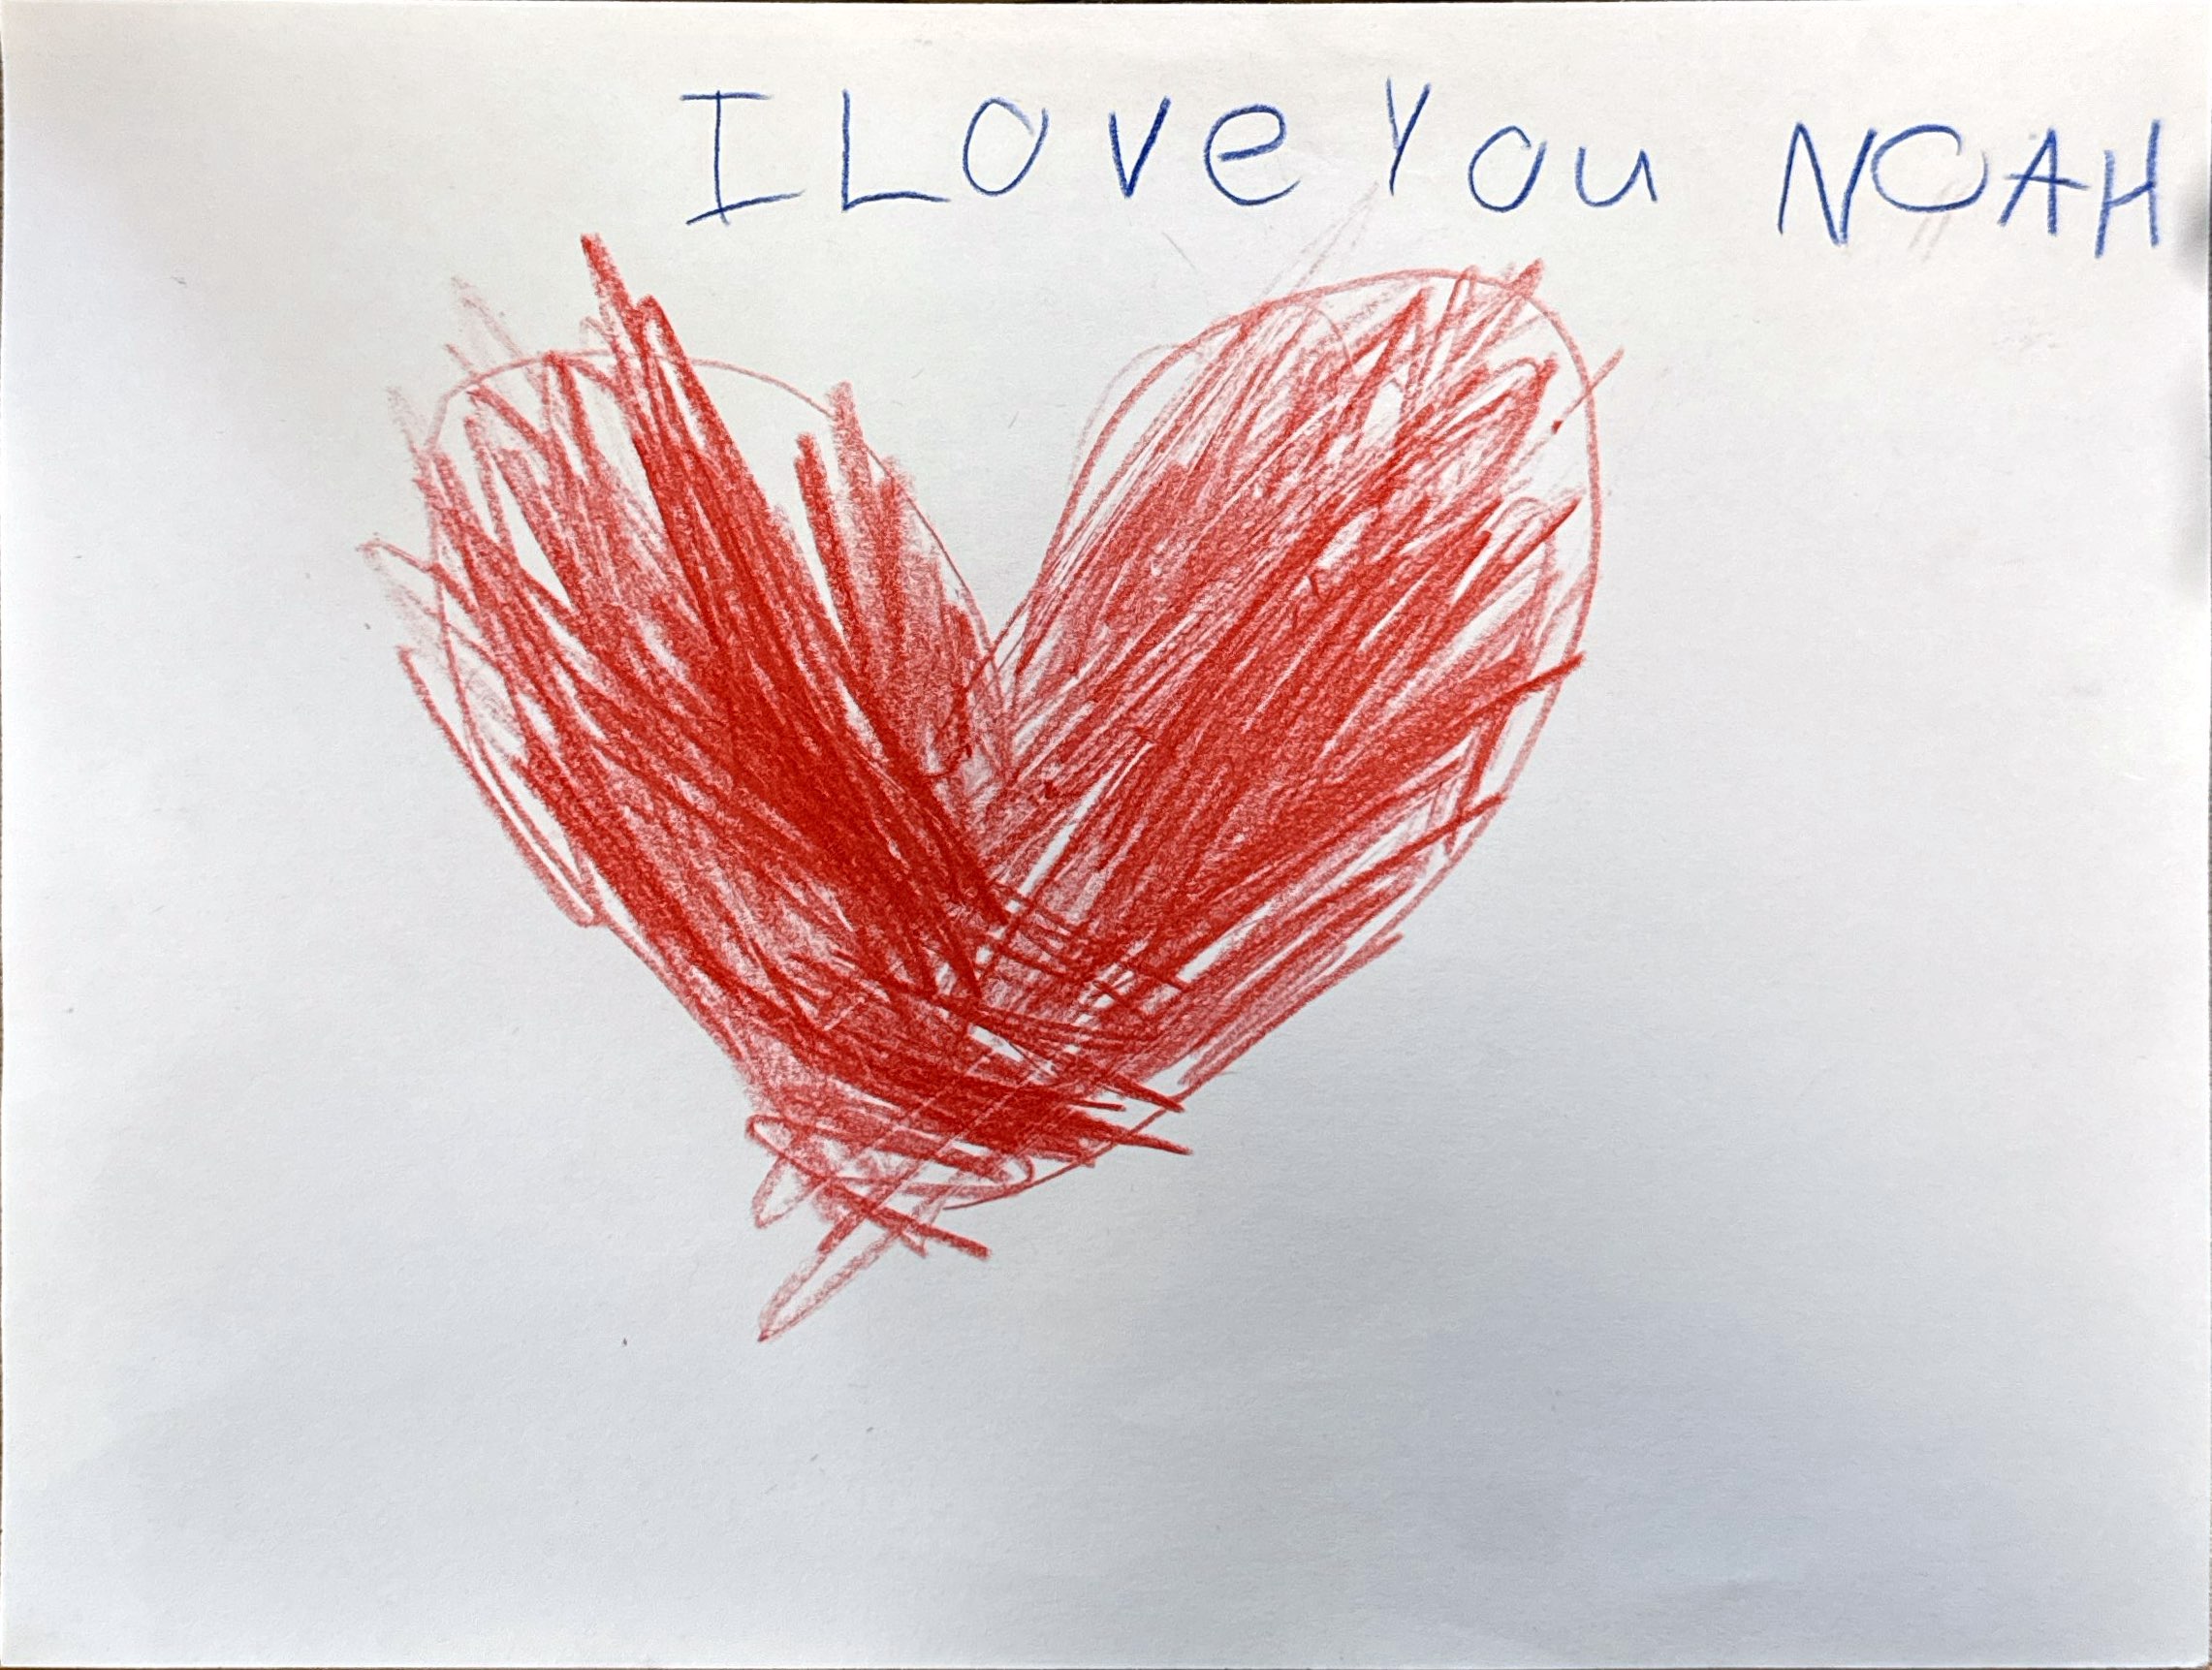 I Love You NOAH